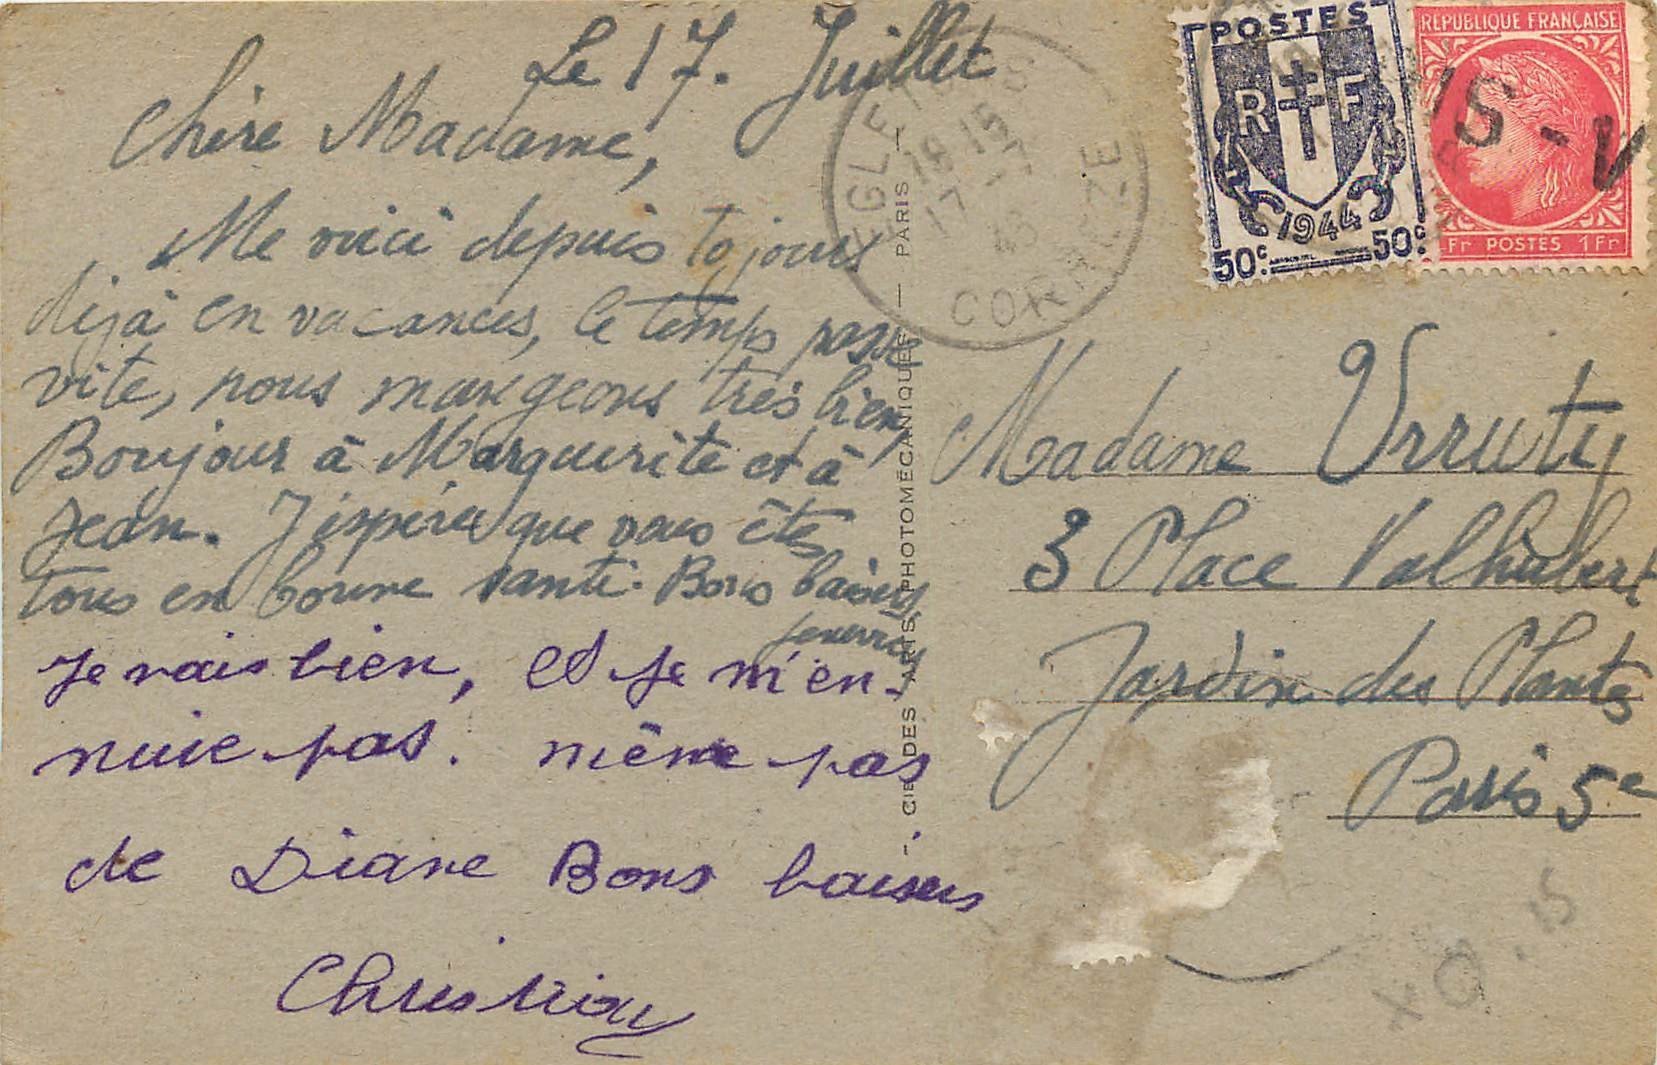 Le 17. Juillet
Chère Madame,
Me voici depuis 10 jours
déjà en vacances, le temps passe
vite, nous mangeons très bien,
Bonjour à Marguerite et à
Jean. J'espère que vous êtes
tous en bonne santé. Bons baisers
Je vais bien, et je m'en-
nuie pas. même pas
de Diane Bons baisers
Christian
CIE DES ARTS PHOTOMÉCANIQUES — PARIS —
EGLETONS
18-15
17-7
CORRÈZE
POSTES
RF
1944
50c. 50c.
REPUBLIQUE FRANÇAISE
Fr POSTES 1Fr
IS-V
Madame Urruty
3 Place Valhubert
Jardin des Plantes
Paris 5e